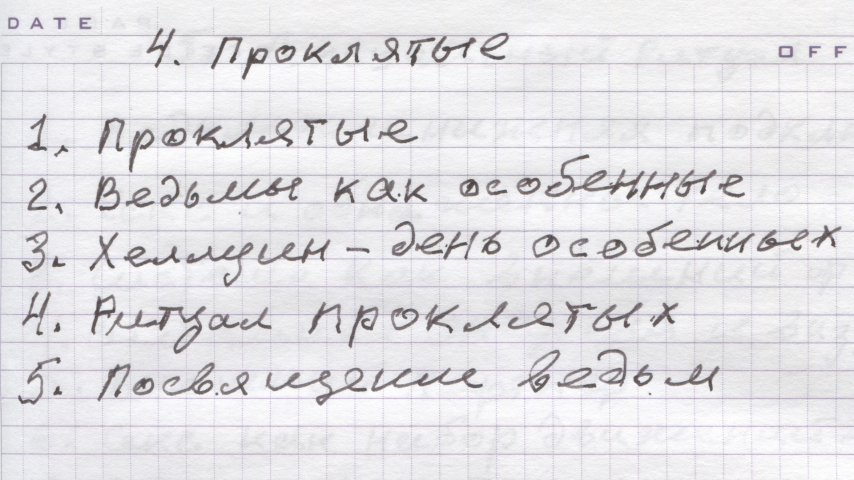 DATE
4. Проклятые
OFF
1. Проклятые
2. Ведьмы как особенные
3. Хеллуин – день особенных
4. Ритуал проклятых
5. Посвящение ведьм